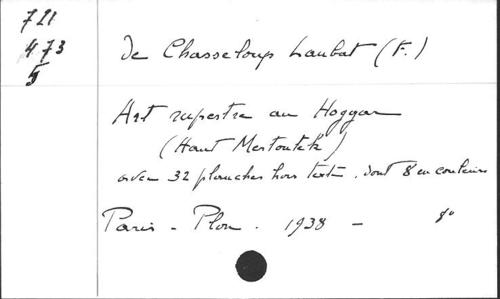 721
473
5
De Chasseloup Laubat (F.)
Art rupestre au Hoggar
(Haut Mertoutek)
avec 32 planches hors texte, dont 8 en couleurs
Paris - Plon. 1938 - 8°